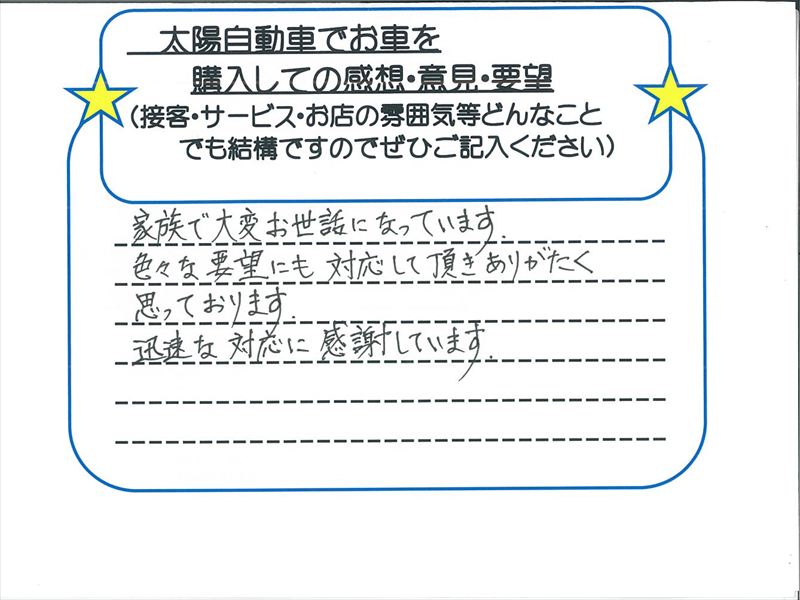 太陽自動車でお車を
購入しての感想・意見・要望
（接客・サービス・お店の雰囲気等どんなこと
でも結構ですのでぜひご記入ください）
家族で大変お世話になっています.
色々な要望にも対応して頂きありがたく
思っております.
迅速な対応に感謝しています.